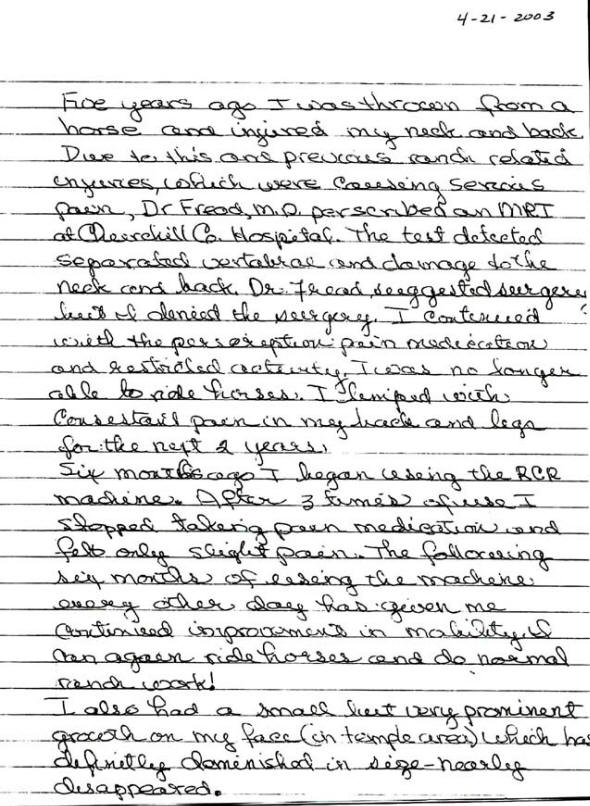 4-21-2003
Five years ago I was thrown from a
horse and injured my neck and back
Due to this and previous ranch related
injuries, which were causing serious
pain, Dr Fread, M.D. perscribed an MRI
at Churchill Co. Hospital. The test detected
separated vertabrae and damage to the
neck and back. Dr. Fread, suggested surgery
but I denied the surgery. I continued
with the perscreption pain medication
and restricted activity. I was no longer
able to ride horses. I limped with
consestant pain in my back and legs
for the next 2 years.
Six months ago I began useing the RCR
machine. After 3 times of use I
stopped taking pain medication and
felt only slight pain. The following
six months of useing the machine
every other day has given me
continued improvement in mobility. I
can again ride horses and do normal
ranch work!
I also had a small but very prominent
growth on my face (in temple area) which has
definitly diminished in size-nearly
disappeared.